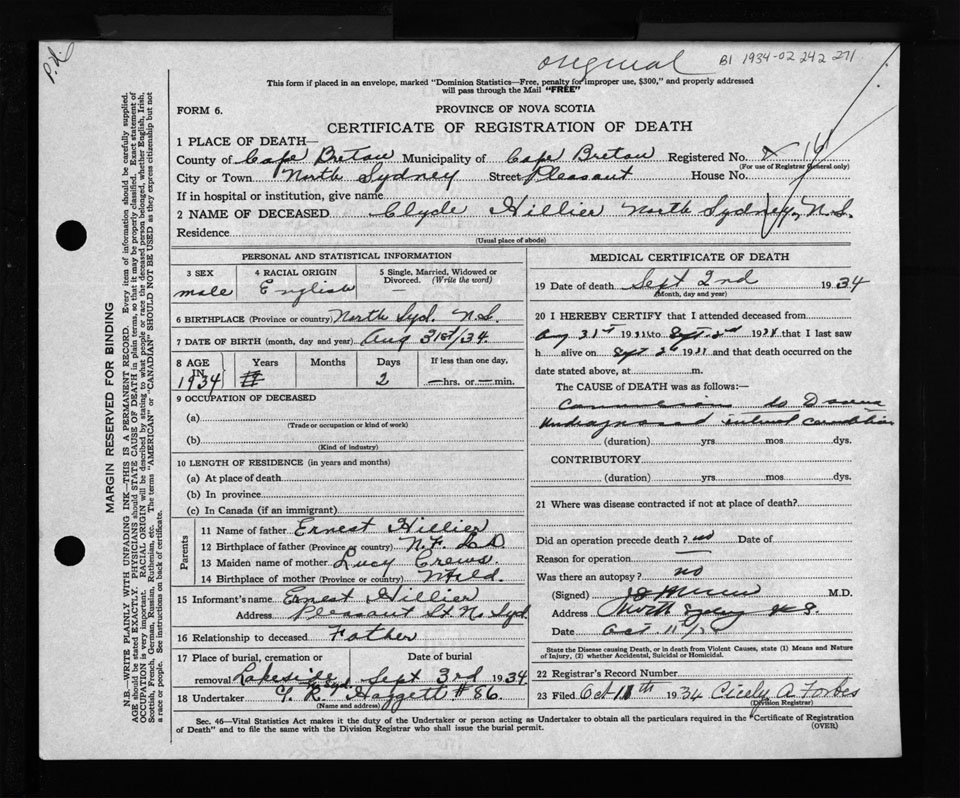 P.N.
original B1 1934-02 242 271
This form if placed in an envelope, marked "Dominion Statistics—Free, penalty for improper use, $300," and properly addressed
will pass through the Mail "FREE"
FORM 6.
PROVINCE OF NOVA SCOTIA
CERTIFICATE OF REGISTRATION OF DEATH
1 PLACE OF DEATH—
County of Cape Breton Municipality of Cape Breton Registered No. X 14
(For use of Registrar General only)
City or Town North Sydney Street Pleasant House No.
If in hospital or institution, give name
2 NAME OF DECEASED Clyde Hillier North Sydney, N.S.
Residence
(Usual place of abode)
MARGIN RESERVED FOR BINDING
N.B.—WRITE PLAINLY WITH UNFADING INK—THIS IS A PERMANENT RECORD. Every item of information should be carefully supplied.
AGE should be stated EXACTLY. PHYSICIANS should STATE CAUSE OF DEATH in plain terms, so that it may be properly classified. Exact statement of
OCCUPATION is very important. RACIAL ORIGIN will be described by stating to what people or race the deceased person belonged, whether English, Irish,
Scottish, French, German, Russian, Ruthenian, etc. The terms "AMERICAN" or "CANADIAN" SHOULD NOT BE USED as they express citizenship but not
a race or people. See instructions on back of certificate.
PERSONAL AND STATISTICAL INFORMATION
3 SEX 4 RACIAL ORIGIN 5 Single, Married, Widowed or
Divorced. (Write the word)
male English —
6 BIRTHPLACE (Province or country) North Syd. N.S.
7 DATE OF BIRTH (month, day and year) Aug 31st/34
8 AGE IN Years Months Days If less than one day,
1934 2 — hrs. or — min.
9 OCCUPATION OF DECEASED
(a)
(Trade or occupation or kind of work)
(b)
(Kind of industry)
10 LENGTH OF RESIDENCE (in years and months)
(a) At place of death
(b) In province
(c) In Canada (if an immigrant)
Parents
11 Name of father Ernest Hillier
12 Birthplace of father (Province or country) N.F. L D.
13 Maiden name of mother Lucy Crews
14 Birthplace of mother (Province or country) Nfld.
15 Informant's name Ernest Hillier
Address Pleasant St. N. Syd.
16 Relationship to deceased Father
17 Place of burial, cremation or Date of burial
removal Lakeside Syd. Sept 3rd 1934
18 Undertaker Haggett # 86.
(Name and address)
MEDICAL CERTIFICATE OF DEATH
19 Date of death Sept 2nd 1934
(Month, day and year)
20 I HEREBY CERTIFY that I attended deceased from
Aug 31st 1931 to Sept. 2nd 1934 that I last saw
h alive on Sept 2nd 1931 and that death occurred on the
date stated above, at m.
The CAUSE of DEATH was as follows:—
Undiagnosed
(duration) yrs mos dys.
CONTRIBUTORY
(duration) yrs. mos. dys.
21 Where was disease contracted if not at place of death?
Did an operation precede death? no Date of
Reason for operation —
Was there an autopsy? no
(Signed) M.D.
Address North Sydney N S.
Date Oct 11th
State the Disease causing Death, or in death from Violent Causes, state (1) Means and Nature
of Injury, (2) whether Accidental, Suicidal or Homicidal.
22 Registrar's Record Number
23 Filed Oct 11th 1934 Cicely A. Forbes
(Division Registrar)
Sec. 46—Vital Statistics Act makes it the duty of the Undertaker or person acting as Undertaker to obtain all the particulars required in the "Certificate of Registration
of Death" and to file the same with the Division Registrar who shall issue the burial permit.
(OVER)